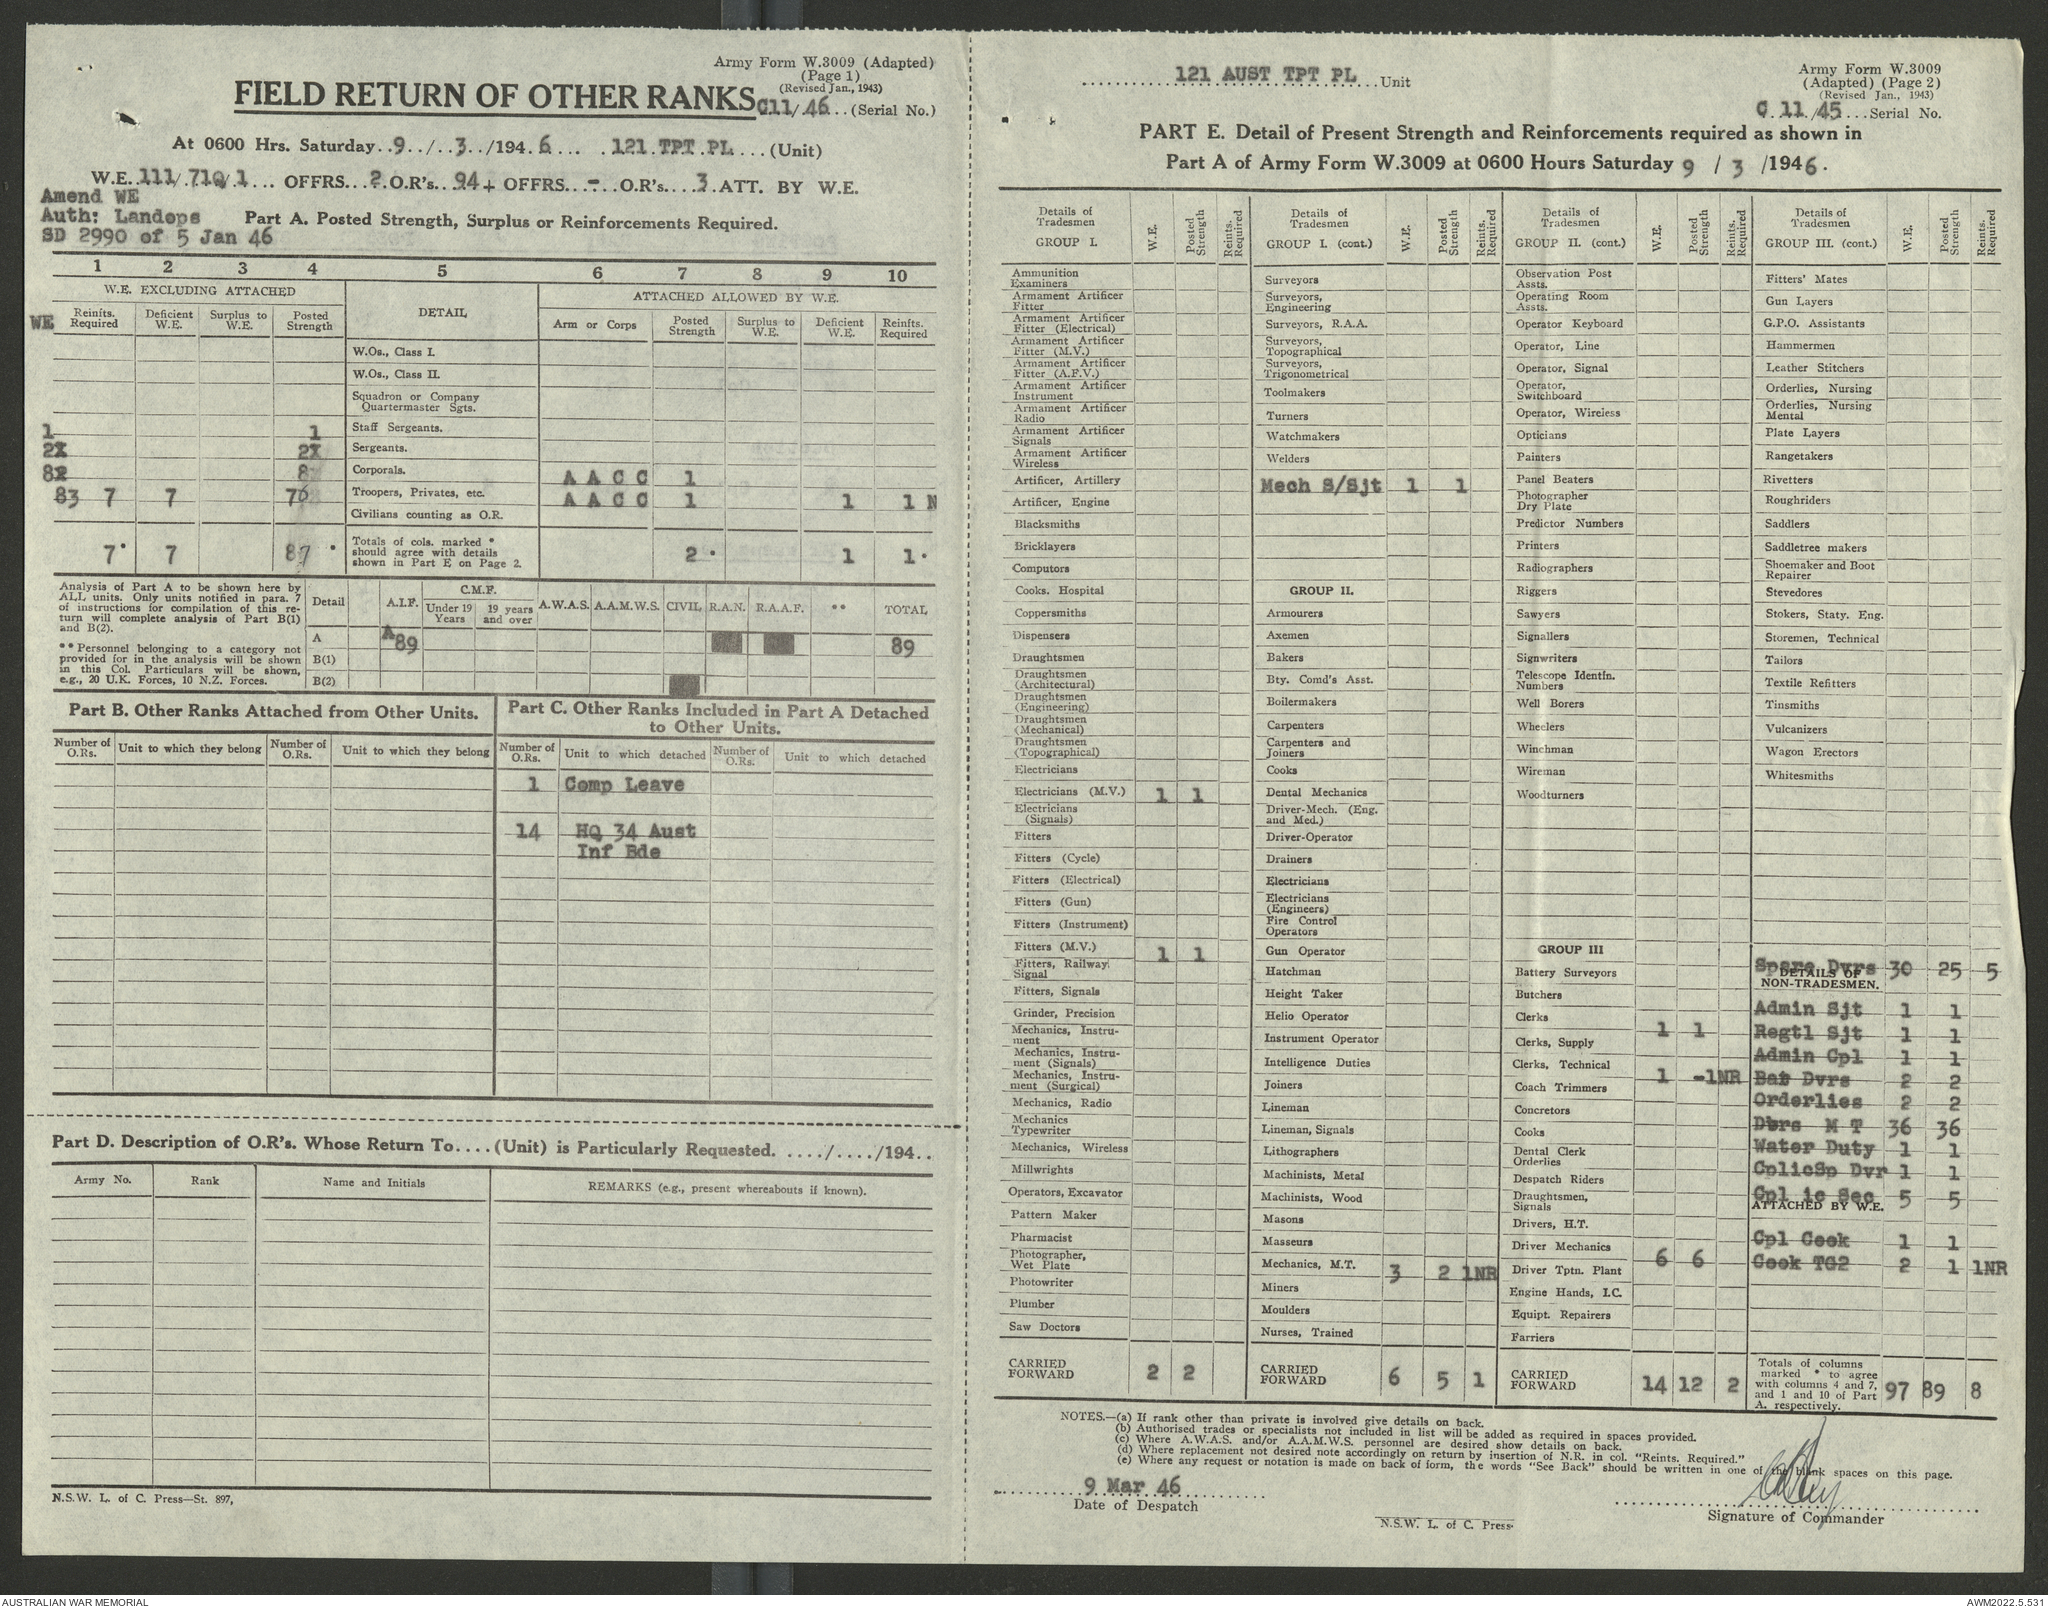 Army Form W.3009 (Adapted)
(Page 1)
(Revised Jan., 1943)
FIELD RETURN OF OTHER RANKS C11/46 (Serial No.)
At 0600 Hrs. Saturday 9 / 3 /1946 121 TPT PL (Unit)
W.E. 111/710/1 OFFRS 2 O.R's. 94 + OFFRS. - O.R's. 3 ATT. BY W.E.
Amend WE
Auth: Landops
SD 2990 of 5 Jan 46
Part A. Posted Strength, Surplus or Reinforcements Required.
1 2 3 4 5 6 7 8 9 10
W.E. EXCLUDING ATTACHED DETAIL ATTACHED ALLOWED BY W.E.
WE Reinfts. Required Deficient W.E. Surplus to W.E. Posted Strength Arm or Corps Posted Strength Surplus to W.E. Deficient W.E. Reinfts. Required
W.Os., Class I.
W.Os., Class II.
Squadron or Company Quartermaster Sgts.
1 1 Staff Sergeants.
2 2 Sergeants.
8 8 Corporals. A A C C 1
83 7 7 76 Troopers, Privates, etc. A A C C 1 1 1 N
Civilians counting as O.R.
7* 7 87 * Totals of cols. marked * should agree with details shown in Part E on Page 2. 2 * 1 1*
Analysis of Part A to be shown here by ALL units. Only units notified in para. 7 of instructions for compilation of this return will complete analysis of Part B(1) and B(2).
** Personnel belonging to a category not provided for in the analysis will be shown in this Col. Particulars will be shown, e.g., 20 U.K. Forces, 10 N.Z. Forces.
Detail A.I.F. C.M.F. Under 19 Years 19 years and over A.W.A.S. A.A.M.W.S. CIVIL R.A.N. R.A.A.F. ** TOTAL
A A 89 89
B(1)
B(2)
Part B. Other Ranks Attached from Other Units.
Number of O.Rs. Unit to which they belong Number of O.Rs. Unit to which they belong
Part C. Other Ranks Included in Part A Detached to Other Units.
Number of O.Rs. Unit to which detached Number of O.Rs. Unit to which detached
1 Comp Leave
14 HQ 34 Aust
Inf Bde
Part D. Description of O.R's. Whose Return To....(Unit) is Particularly Requested. ...../...../194..
Army No. Rank Name and Initials REMARKS (e.g., present whereabouts if known).
N.S.W. L. of C. Press—St. 897,
121 AUST TPT PL Unit
Army Form W.3009
(Adapted) (Page 2)
(Revised Jan., 1943)
C 11/45 Serial No.
PART E. Detail of Present Strength and Reinforcements required as shown in
Part A of Army Form W.3009 at 0600 Hours Saturday 9 / 3 /1946.
Details of Tradesmen GROUP I. W.E. Posted Strength Reints. Required
Ammunition Examiners
Armament Artificer Fitter
Armament Artificer Fitter (Electrical)
Armament Artificer Fitter (M.V.)
Armament Artificer Fitter (A.F.V.)
Armament Artificer Instrument
Armament Artificer Radio
Armament Artificer Signals
Armament Artificer Wireless
Artificer, Artillery
Artificer, Engine
Blacksmiths
Bricklayers
Computors
Cooks. Hospital
Coppersmiths
Dispensers
Draughtsmen
Draughtsmen (Architectural)
Draughtsmen (Engineering)
Draughtsmen (Mechanical)
Draughtsmen (Topographical)
Electricians
Electricians (M.V.) 1 1
Electricians (Signals)
Fitters
Fitters (Cycle)
Fitters (Electrical)
Fitters (Gun)
Fitters (Instrument)
Fitters (M.V.) 1 1
Fitters, Railway Signal
Fitters, Signals
Grinder, Precision
Mechanics, Instrument
Mechanics, Instrument (Signals)
Mechanics, Instrument (Surgical)
Mechanics, Radio
Mechanics Typewriter
Mechanics, Wireless
Millwrights
Operators, Excavator
Pattern Maker
Pharmacist
Photographer, Wet Plate
Photowriter
Plumber
Saw Doctors
CARRIED FORWARD 2 2
Details of Tradesmen GROUP I. (cont.) W.E. Posted Strength Reints. Required
Surveyors
Surveyors, Engineering
Surveyors, R.A.A.
Surveyors, Topographical
Surveyors, Trigonometrical
Toolmakers
Turners
Watchmakers
Welders
Mech S/Sjt 1 1
GROUP II.
Armourers
Axemen
Bakers
Bty. Comd's Asst.
Boilermakers
Carpenters
Carpenters and Joiners
Cooks
Dental Mechanics
Driver-Mech. (Eng. and Med.)
Driver-Operator
Drainers
Electricians
Electricians (Engineers)
Fire Control Operators
Gun Operator
Hatchman
Height Taker
Helio Operator
Instrument Operator
Intelligence Duties
Joiners
Lineman
Lineman, Signals
Lithographers
Machinists, Metal
Machinists, Wood
Masons
Masseurs
Mechanics, M.T. 3 2 1NR
Miners
Moulders
Nurses, Trained
CARRIED FORWARD 6 5 1
Details of Tradesmen GROUP II. (cont.) W.E. Posted Strength Reints. Required
Observation Post Assts.
Operating Room Assts.
Operator Keyboard
Operator, Line
Operator, Signal
Operator, Switchboard
Operator, Wireless
Opticians
Painters
Panel Beaters
Photographer Dry Plate
Predictor Numbers
Printers
Radiographers
Riggers
Sawyers
Signallers
Signwriters
Telescope Identfn. Numbers
Well Borers
Wheelers
Winchman
Wireman
Woodturners
GROUP III
Battery Surveyors
Butchers
Clerks 1 1
Clerks, Supply
Clerks, Technical
Coach Trimmers 1 - 1NR
Concretors
Cooks
Dental Clerk Orderlies
Despatch Riders
Draughtsmen, Signals
Drivers, H.T.
Driver Mechanics 6 6
Driver Tptn. Plant
Engine Hands, I.C.
Equipt. Repairers
Farriers
CARRIED FORWARD 14 12 2
Details of Tradesmen GROUP III. (cont.) W.E. Posted Strength Reints. Required
Fitters' Mates
Gun Layers
G.P.O. Assistants
Hammermen
Leather Stitchers
Orderlies, Nursing
Orderlies, Nursing Mental
Plate Layers
Rangetakers
Rivetters
Roughriders
Saddlers
Saddletree makers
Shoemaker and Boot Repairer
Stevedores
Stokers, Staty. Eng.
Storemen, Technical
Tailors
Textile Refitters
Tinsmiths
Vulcanizers
Wagon Erectors
Whitesmiths
Spare Dvrs 30 25 5
DETAILS OF NON-TRADESMEN.
Admin Sjt 1 1
Regtl Sjt 1 1
Admin Cpl 1 1
Bat Dvrs 2 2
Orderlies 2 2
Dvrs M T 36 36
Water Duty 1 1
CplicSp Dvr 1 1
Cpl ic Sec 5 5
ATTACHED BY W.E.
Cpl Cook 1 1
Cook TG2 2 1 1NR
Totals of columns marked * to agree with columns 4 and 7, and 1 and 10 of Part A. respectively. 97 89 8
NOTES.—(a) If rank other than private is involved give details on back.
(b) Authorised trades or specialists not included in list will be added as required in spaces provided.
(c) Where A.W.A.S. and/or A.A.M.W.S. personnel are desired show details on back.
(d) Where replacement not desired note accordingly on return by insertion of N.R. in col. "Reints. Required."
(e) Where any request or notation is made on back of form, the words "See Back" should be written in one of the blank spaces on this page.
9 Mar 46
Date of Despatch
Signature of Commander
N.S.W. L. of C. Press
AUSTRALIAN WAR MEMORIAL
AWM2022.5.531